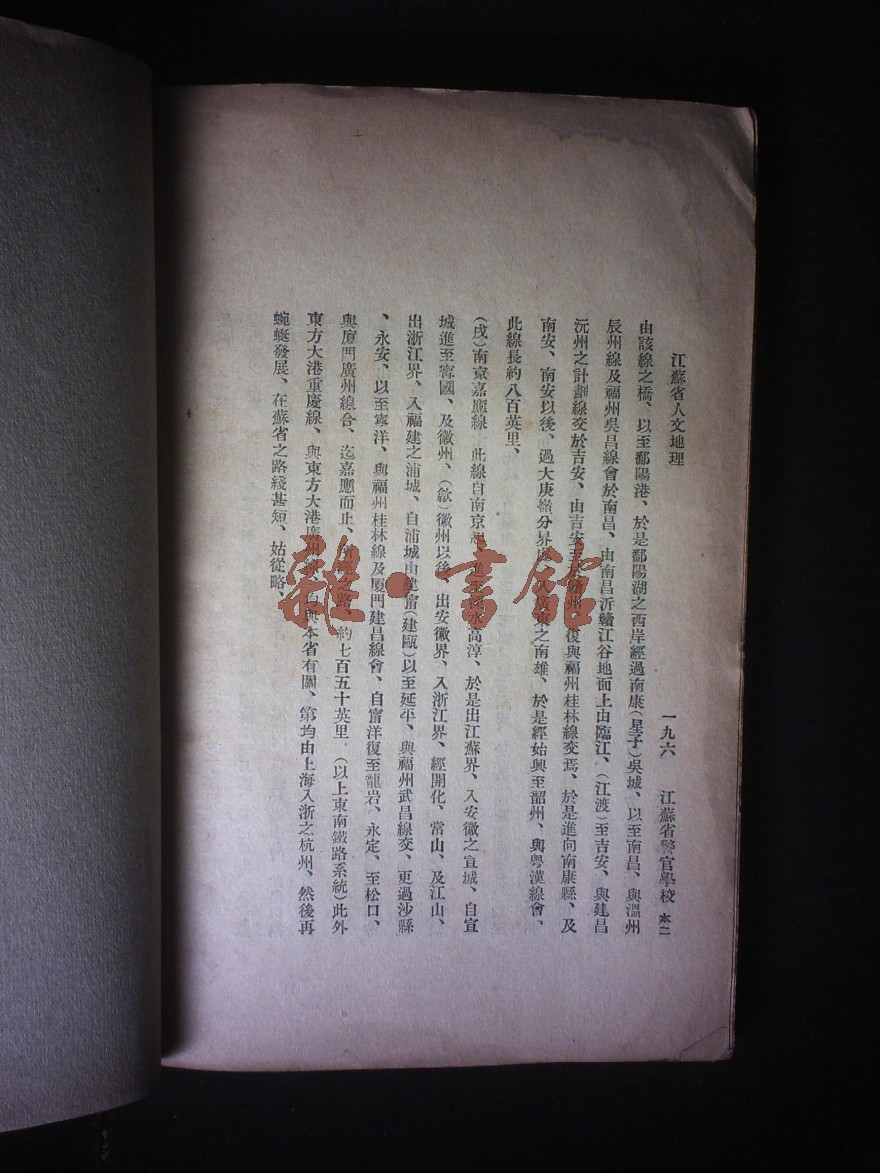 江蘇省人文地理
一九六
江蘇省警官學校 本二
由該線之橋、以至鄱陽港、於是鄱陽湖之西岸經過南康(星子)吳城、以至南昌、與溫州
辰州線及福州吳昌線會於南昌、由南昌沂贛江谷地面上由臨江、(江渡)至吉安、與建昌
沅州之計劃線交於吉安、由吉安至贛州、復與福州桂林線交焉、於是進向南康縣、及
南安、南安以後、過大庚嶺分界處、入廣東之南雄、於是經始興至韶州、與粤漢線會、
此線長約八百英里、
(戌)南京嘉應線 此線自南京起、進至溧水高淳、於是出江蘇界、入安徽之宣城、自宣
城進至寗國、及徽州、(歙)徽州以後、出安徽界、入浙江界、經開化、常山、及江山、
出浙江界、入福建之浦城、自浦城由建甯(建甌)以至延平、與福州武昌線交、更過沙縣
、永安、以至寧洋、與福州桂林線及厦門建昌線會、自甯洋復至龍岩、永定、至松口、
與廈門廣州線合、迄嘉應而止、所經之路、約七百五十英里、(以上東南鐵路系統)此外
東方大港重慶線、與東方大港廣州線、與本省有關、第均由上海入浙之杭州、然後再
蜿蜒發展、在蘇省之路綫甚短、姑從略、
雜·書館